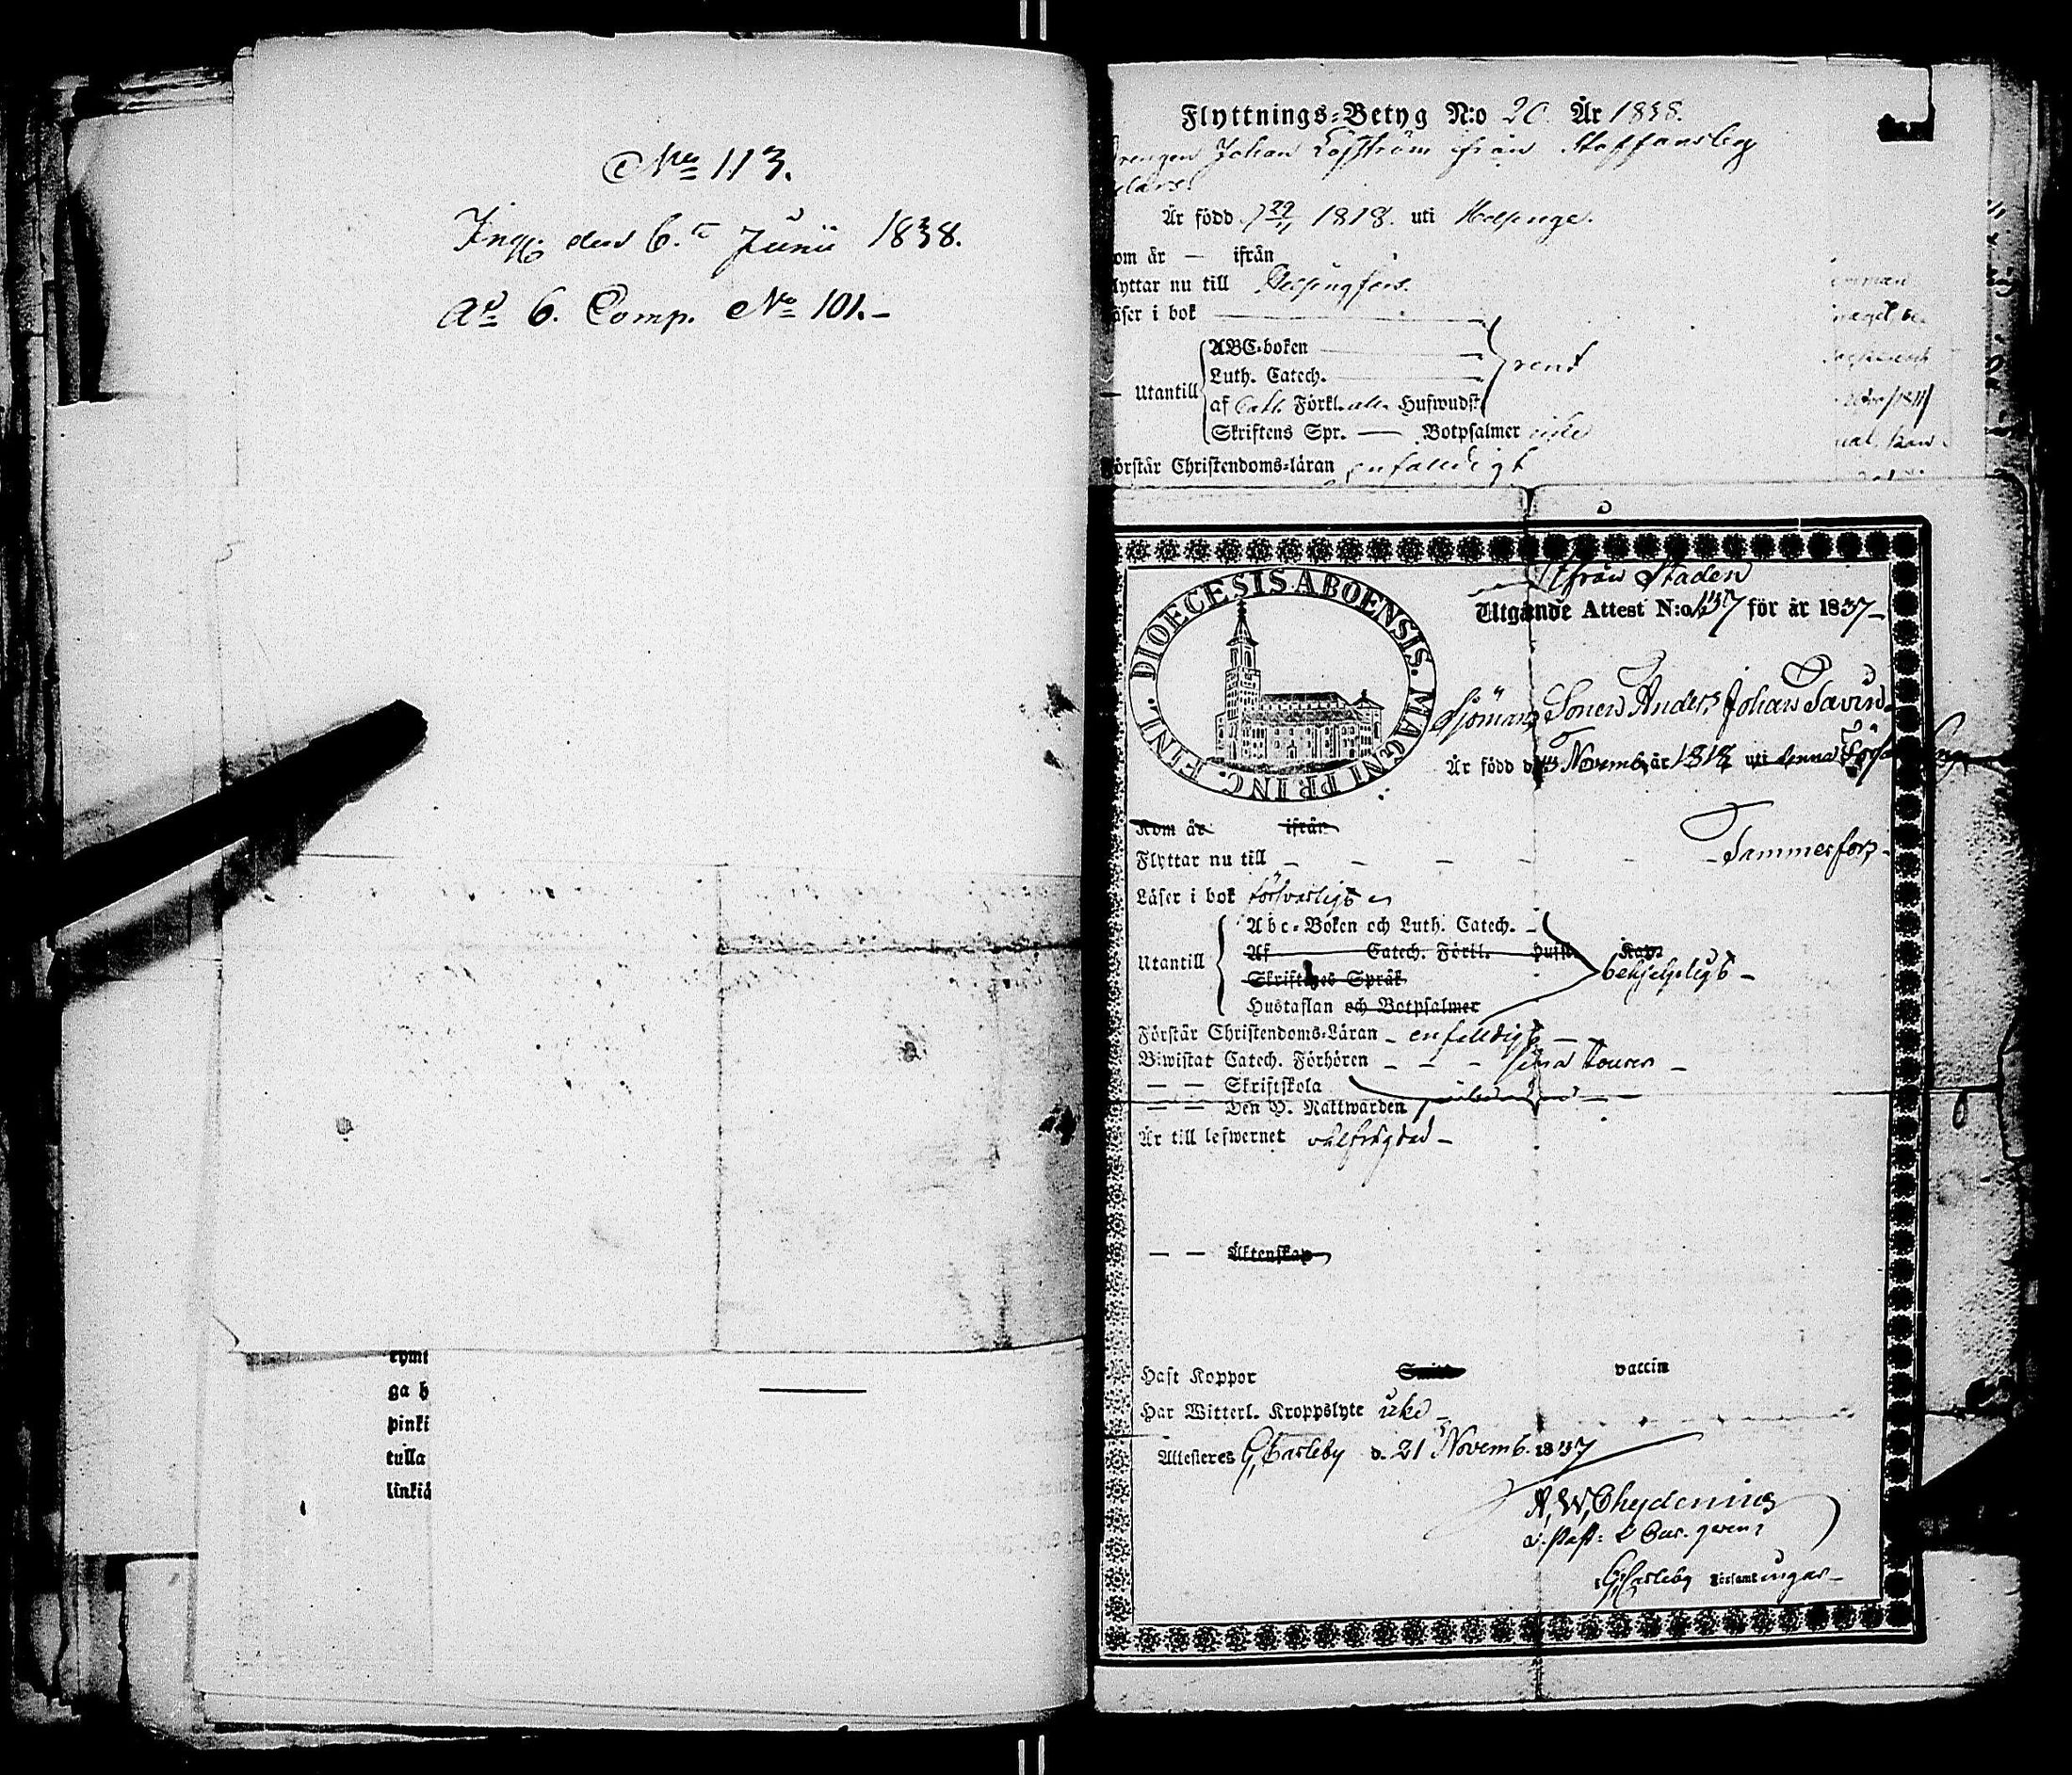 No 113.
Ing. den 6.te Junii 1838.
Ad 6. Comp. No 101.-
rymi
ga h
pinki
tulla
linkiä
Flyttnings-Betyg N:o 20 År 1838.
Drengen Johan Löfström från Staffansby
Är född 29/1 1818. uti Helsinge.
om år — ifrån
lyttar nu till Helsingfors.
äser i bok
Utantill
ABC-boken
Luth. Catech.
af Cath. Förkl. alla Hufwudst.
rent
Skriftens Spr. — Botpsalmer icke
örstår Christendoms-läran enfaldigt
DIOECESIS ABOENSIS. MAGNI PRINC. FINL.
Ifrån Staden
Utgående Attest N:o 137 för år 1837-
Sjömans Sonen Anders Johan Savin.
Är född d. 13 Novemb. år 1818 uti denna
Kom år ifrån
Flyttar nu till - - - - - Tammerfors-
Läser i bok försvarligt
Utantill
Abc-Boken och Luth. Catech. -
Af Catech. Förkl. Hufst. Kap.
Skriftenes Språk
behjelpligt -
Hustaflan och Botpsalmer
Förstår Christendoms-Läran - enfaldigt -
Biwistat Catech. Förhören - - -
— — Skriftskola
— — Den H. Nattwarden
Är till lefwernet välfrägdad -
— — Äktenskap
Haft Koppor vaccin
Har Witterl. Kroppslyte icke -
Attesteras G. Carleby d. 21 Novemb. 1837
A. W. Chydenius
G. Carleby Församlingar-